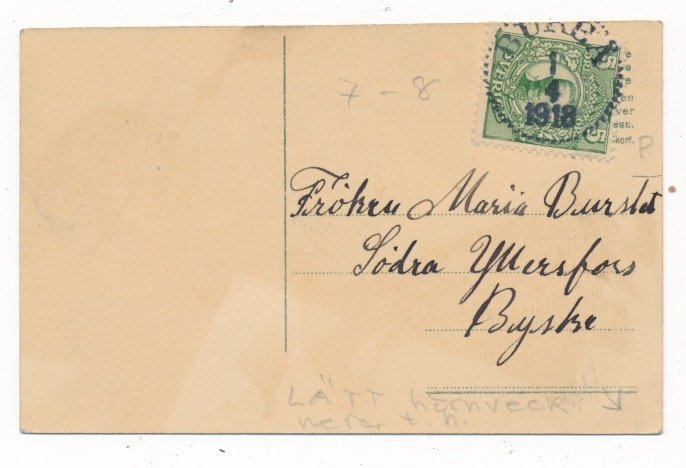 BUREÅ
1
4
1918
SVERIGE
5
7-8
P
Fröken Maria Burstedt
Södra Yttersfors
Byske
LÄTT hörnveck
nere t. h.